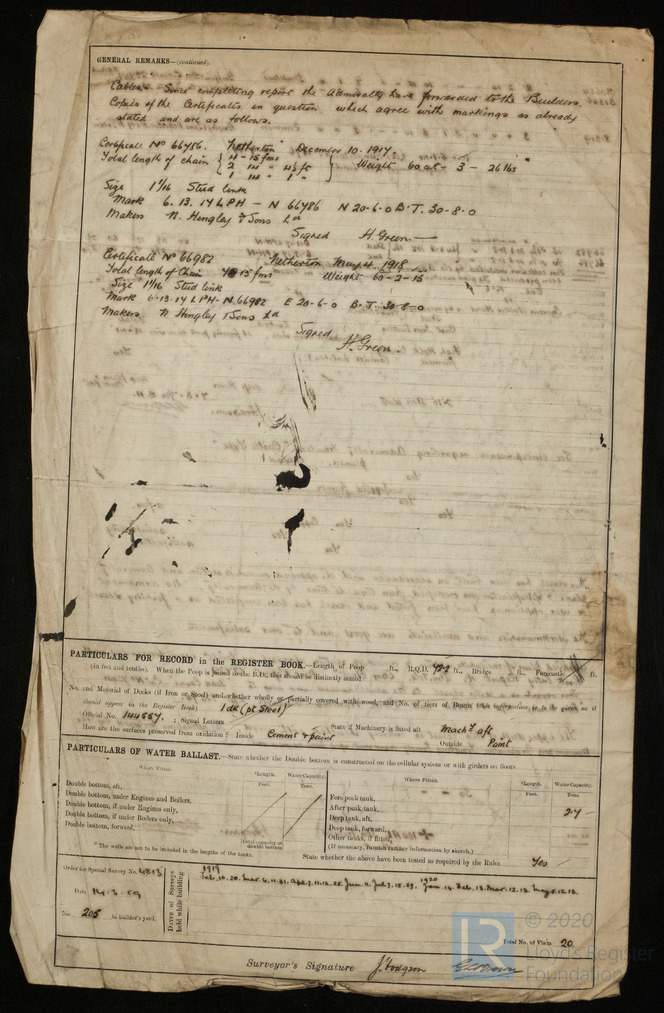 GENERAL REMARKS—(continued).
Cables. Since completing report the Admiralty have forwarded to the Builders
Copies of the Certificates in question which agree with markings as already
stated and are as follows.
Certificate No 66786. Netherton December 10. 1917.
Total length of chain { 4 - 15 fms } Weight 60 cwt - 3 - 26 lbs
Size 1 1/16 Stud link
Mark 6. 13. 17 LPH - N 66786 N 20-6-0 B.T. 30-8-0
Makers N. Hingley & Sons Ld
Signed H. Green.
Certificate No 66982 Netherton May 4 1918
Total length of Chain 15 fms Weight 60-2-15
Size 1 1/16 Stud link
Mark 6-13-17 LPH-N 66982 E 20-6-0 B.T. 30-8-0
Makers N Hingley & Sons Ld
Signed
H. Green.
PARTICULARS FOR RECORD in the REGISTER BOOK.—Length of Poop ft., R.Q.D. ft., Bridge ft., Forecastle ft.
(in feet and tenths). When the Poop is joined to the B.D., this should be distinctly stated
No. and Material of Decks (if Iron or Steel) and whether wholly or partially covered with wood, and No. of tiers of Beams (this information is to be given as it
should appear in the Register Book) 1 dk (pt Steel)
Official No. 144557. ; Signal Letters State if Machinery is fitted aft Machy aft
How are the surfaces preserved from oxidation? Inside Cement & paint Outside Paint
PARTICULARS OF WATER BALLAST.—State whether the Double bottom is constructed on the cellular system or with girders on floors
Where Fitted. *Length. Water Capacity. Where Fitted. *Length. Water Capacity.
Feet. Tons. Feet. Tons.
Double bottom, aft, Forepeak tank,
Double bottom, under Engines and Boilers, After peak tank, 27
Double bottom, if under Engines only, Deep tank, aft,
Double bottom, if under Boilers only, Deep tank, forward,
Double bottom, forward, Other tanks, if fitted,
Total capacity of double bottom (If necessary, furnish further information by sketch.)
* The wells are not to be included in the lengths of the tanks.
State whether the above have been tested as required by the Rules Yes
Order for Special Survey No. 4813
Date
No. 205 in builder's yard.
Dates of Surveys held while building
1919
1920
Total No. of Visits 20
Surveyor's Signature J. Hodgson
© 2020
Lloyd's Register
Foundation